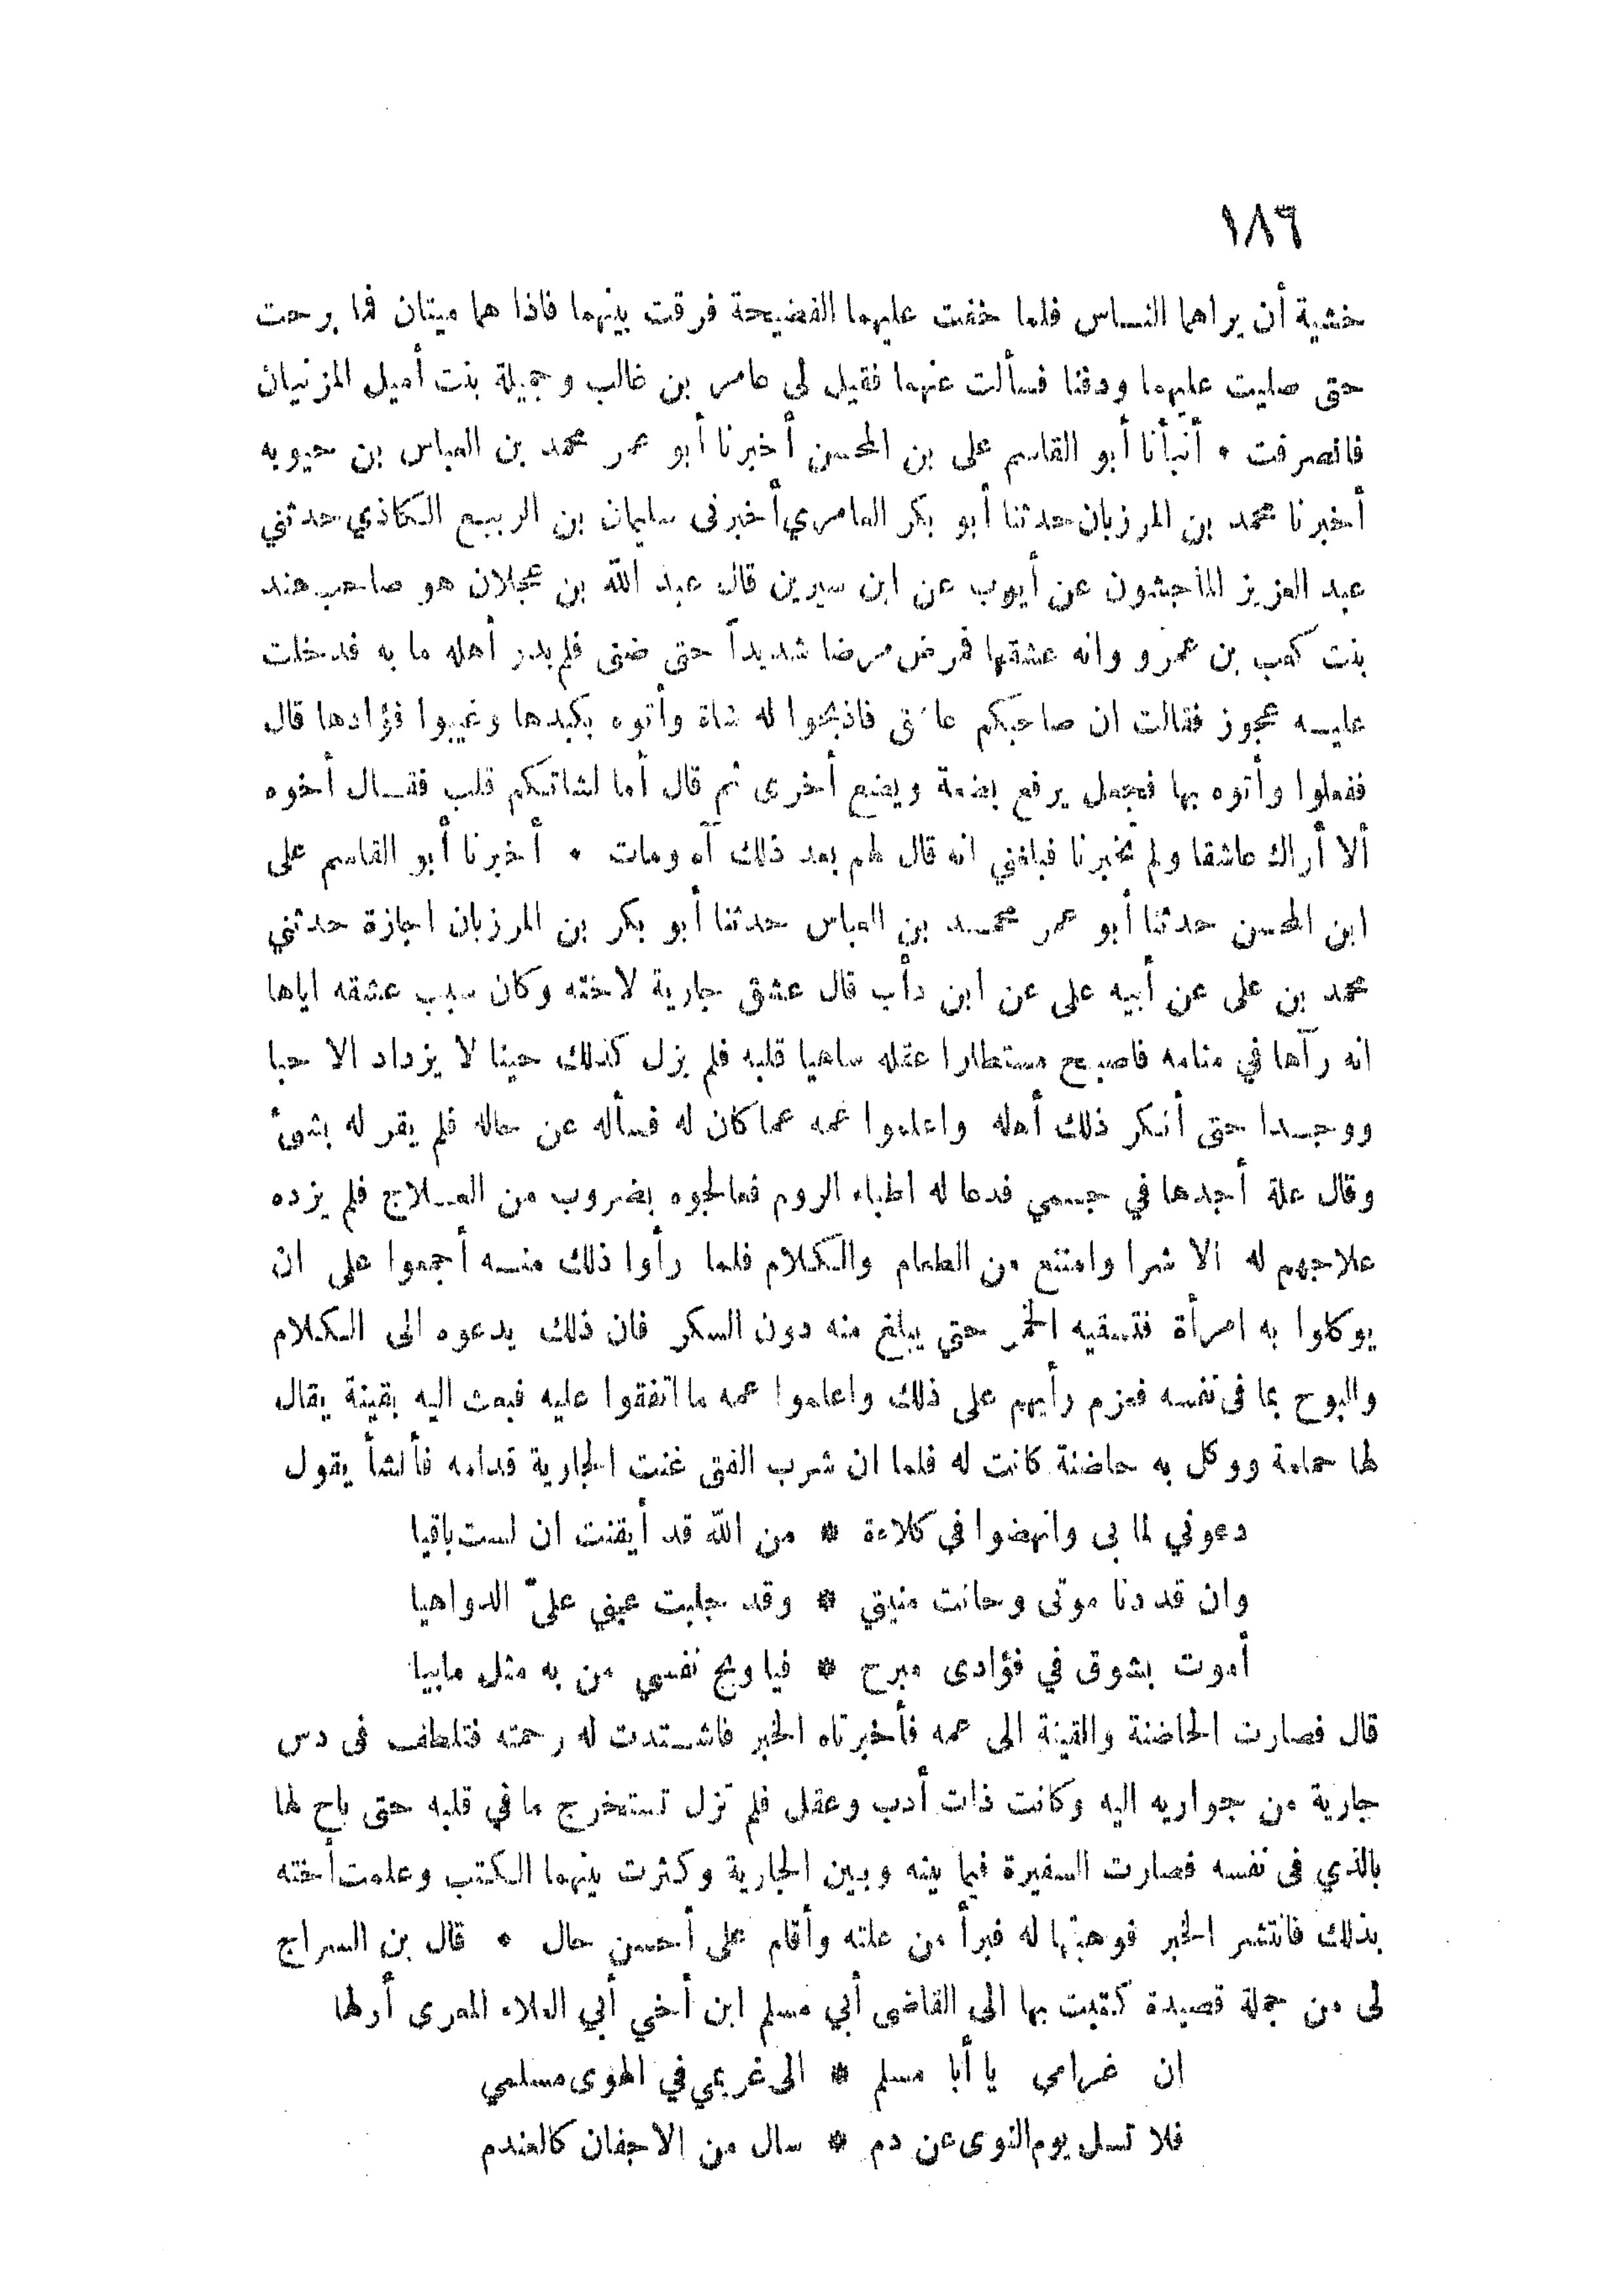 ١٨٦
خشية أن يراهما الناس فلما خفت عليهما الفضيحة فرقت بينهما فاذا هما ميتان فما برحت
حتى صليت عليهما ودفنا فسألت عنهما فقيل لى عامر بن غالب وجميلة بنت أميل المزنيان
فانصرفت • أنبأنا أبو القاسم على بن المحسن أخبرنا أبو عمر محمد بن العباس بن حيويه
أخبرنا محمد بن المرزبان حدثنا أبو بكر العامري أخبرنى سليمان بن الربيع الكاذي حدثني
عبد العزيز الماجشون عن أيوب عن ابن سيرين قال عبد الله بن عجلان هو صاحب هند
بنت كعب بن عمرو وانه عشقها فمرض مرضا شديداً حتى ضنى فلم يدر أهله ما به فدخلت
عليه عجوز فقالت ان صاحبكم عاشق فاذبحوا له شاة وأتوه بكبدها وغيبوا فؤادها قال
ففعلوا وأتوه بها فجعل يرفع بضعة ويضع أخرى ثم قال أما لشاتكم قلب فقال أخوه
ألا أراك عاشقا ولم تخبرنا فبلغني انه قال لهم بعد ذلك آه ومات • أخبرنا أبو القاسم على
ابن المحسن حدثنا أبو عمر محمد بن العباس حدثنا أبو بكر بن المرزبان اجازة حدثني
محمد بن على عن أبيه على عن ابن دأب قال عشق جارية لاخته وكان سبب عشقه اياها
انه رآها في منامه فاصبح مستطارا عقله ساهيا قلبه فلم يزل كذلك حينا لا يزداد الا حبا
ووجدا حتى أنكر ذلك أهله واعلموا عمه عما كان له فسأله عن حاله فلم يقر له بشئ
وقال علة أجدها في جسمي فدعا له اطباء الروم فعالجوه بضروب من العلاج فلم يزده
علاجهم له الا شرا وامتنع من الطعام والكلام فلما رأوا ذلك منه أجمعوا على ان
يوكلوا به امرأة فتسقيه الخمر حتي يبلغ منه دون السكر فان ذلك يدعوه الى الكلام
والبوح بما فى نفسه فعزم رأيهم على ذلك واعلموا عمه ما اتفقوا عليه فبعث اليه بقينة يقال
لها حمامة ووكل به حاضنة كانت له فلما ان شرب الفتى غنت الجارية قدامه فأنشأ يقول
دعوني لما بى وانهضوا في كلاءة * من الله قد أيقنت ان لست باقيا
وان قد دنا موتى وحانت منيتي * وقد جلبت عيني علىّ الدواهيا
أموت بشوق في فؤادى مبرح * فيا ويح نفسي من به مثل مابيا
قال فصارت الحاضنة والقينة الى عمه فأخبرتاه الخبر فاشتدت له رحمته فتلطف فى دس
جارية من جواريه اليه وكانت ذات أدب وعقل فلم تزل تستخرج ما في قلبه حتى باح لها
بالذي فى نفسه فصارت السفيرة فيما بينه وبين الجارية وكثرت بينهما الكتب وعلمت أخته
بذلك فانتشر الخبر فوهبتها له فبرأ من علته وأقام على أحسن حال • قال بن السراج
لى من جملة قصيدة كتبت بها الى القاضى أبي مسلم ابن أخي أبي العلاء المعرى أولها
ان غرامى يا أبا مسلم * الى غريمي في الهوى مسلمي
فلا تسل يوم النوى عن دم * سال من الاجفان كالعندم